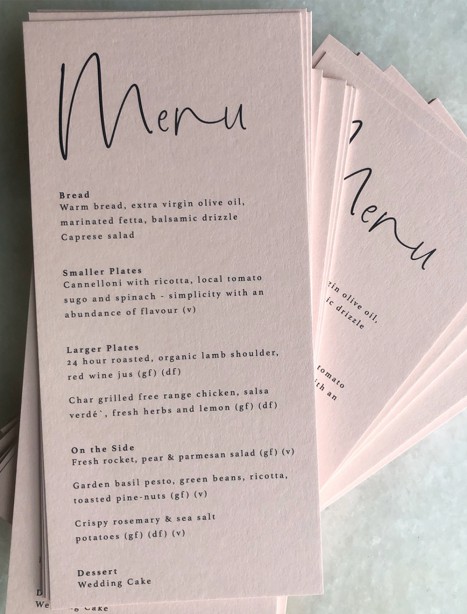 Menu
Bread
Warm bread, extra virgin olive oil,
marinated fetta, balsamic drizzle
Caprese salad
Smaller Plates
Cannelloni with ricotta, local tomato
sugo and spinach - simplicity with an
abundance of flavour (v)
Larger Plates
24 hour roasted, organic lamb shoulder,
red wine jus (gf) (df)
Char grilled free range chicken, salsa
verdé`, fresh herbs and lemon (gf) (df)
On the Side
Fresh rocket, pear & parmesan salad (gf) (v)
Garden basil pesto, green beans, ricotta,
toasted pine-nuts (gf) (v)
Crispy rosemary & sea salt
potatoes (gf) (df) (v)
Dessert
Wedding Cake
Menu
olive oil,
drizzle
tomato
an
Cake